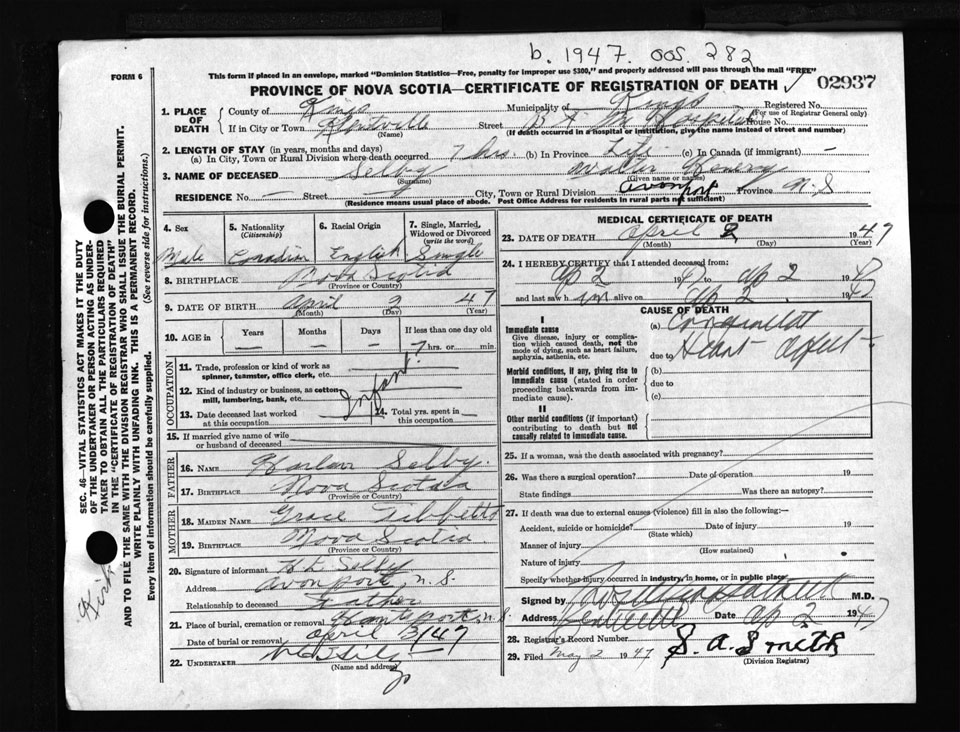 b. 1947. 005. 282
FORM 6
This form if placed in an envelope, marked "Dominion Statistics—Free, penalty for improper use $300," and properly addressed will pass through the mail "FREE"
PROVINCE OF NOVA SCOTIA—CERTIFICATE OF REGISTRATION OF DEATH 02937
1. PLACE OF DEATH
County of Kings Municipality of Kings Registered No.
(For use of Registrar General only)
If in City or Town Kentville Street B F M Hospital House No.
(Name) (If death occurred in a hospital or institution, give the name instead of street and number)
2. LENGTH OF STAY (in years, months and days)
(a) In City, Town or Rural Division where death occurred 7 hrs. (b) In Province Life (c) In Canada (if immigrant) —
3. NAME OF DECEASED Selby Walter Henry
(Surname) (Given name or names)
RESIDENCE No. — Street City, Town or Rural Division Avonport Province N.S
(Residence means usual place of abode. Post Office Address for residents in rural parts not sufficient)
4. Sex
Male
5. Nationality
(Citizenship)
Canadian
6. Racial Origin
English
7. Single, Married, Widowed or Divorced
(write the word)
Single
8. BIRTHPLACE Nova Scotia
(Province or Country)
9. DATE OF BIRTH April 2 47
(Month) (Day) (Year)
10. AGE in Years Months Days If less than one day old
— — — 7 hrs. or min.
OCCUPATION
11. Trade, profession or kind of work as spinner, teamster, office clerk, etc.
12. Kind of industry or business, as cotton-mill, lumbering, bank, etc.
Infant
13. Date deceased last worked at this occupation
14. Total yrs. spent in this occupation
15. If married give name of wife or husband of deceased
FATHER
16. NAME Harlan Selby.
17. BIRTHPLACE Nova Scotia
(Province or Country)
MOTHER
18. MAIDEN NAME Grace Tibbetts
19. BIRTHPLACE Nova Scotia.
(Province or Country)
20. Signature of informant H L Selby
Address Avonport, N.S.
Relationship to deceased Father
21. Place of burial, cremation or removal Hantsport, N.S.
Date of burial or removal April 3/47
22. UNDERTAKER
(Name and address)
MEDICAL CERTIFICATE OF DEATH
23. DATE OF DEATH April 2 1947
(Month) (Day) (Year)
24. I HEREBY CERTIFY that I attended deceased from:
Ap 2 1947 to Ap 2 1947
and last saw him alive on Ap 2 1947
CAUSE OF DEATH
I
Immediate cause
Give disease, injury or complication which caused death, not the mode of dying, such as heart failure, asphyxia, asthenia, etc.
(a) Congenital
due to Heart defect
Morbid conditions, if any, giving rise to immediate cause (stated in order proceeding backwards from immediate cause).
(b)
due to
(c)
II
Other morbid conditions (if important) contributing to death but not causally related to immediate cause.
25. If a woman, was the death associated with pregnancy?
26. Was there a surgical operation? Date of operation 19
State findings Was there an autopsy?
27. If death was due to external causes (violence) fill in also the following:—
Accident, suicide or homicide? Date of injury 19
(State which)
Manner of injury
(How sustained)
Nature of injury
Specify whether injury occurred in industry, in home, or in public place
Signed by M.D.
Address Kentville Date Ap 2 1947
28. Registrar's Record Number
29. Filed May 2 1947 S. A. Smith
(Division Registrar)
SEC. 46—VITAL STATISTICS ACT MAKES IT THE DUTY OF THE UNDERTAKER OR PERSON ACTING AS UNDERTAKER TO OBTAIN ALL THE PARTICULARS REQUIRED IN THE "CERTIFICATE OF REGISTRATION OF DEATH" AND TO FILE THE SAME WITH THE DIVISION REGISTRAR WHO SHALL ISSUE THE BURIAL PERMIT.
WRITE PLAINLY WITH UNFADING INK. THIS IS A PERMANENT RECORD.
Every item of information should be carefully supplied. (See reverse side for instructions.)